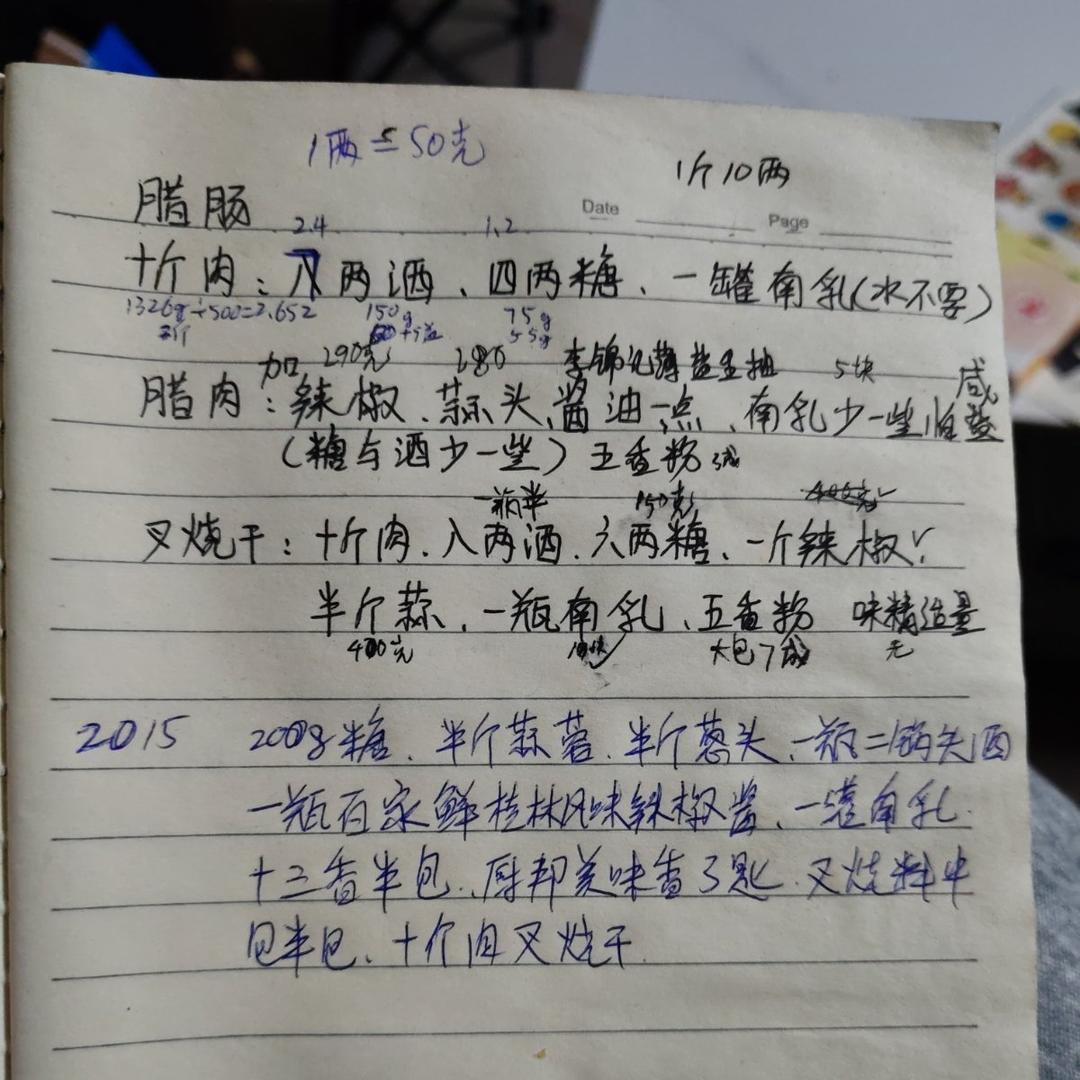 1两=50克
1斤10两
腊肠
Date Page
2.4 1.2
十斤肉：八两酒、四两糖、一罐南乳(水不要)
1326g÷500=2.652 150g 75g
3斤 +5盐 55g
加 290克 280 李锦记薄盐生抽 5块
腊肉：辣椒、蒜头、酱油一点、南乳少一些怕咸
(糖与酒少一些)五香粉
一瓶半 150克
叉烧干：十斤肉、八两酒、六两糖、一斤辣椒
半斤蒜、一瓶南乳、五香粉 味精适量
400克 10块 大包7成 无
2015 200g糖、半斤蒜蓉、半斤葱头、一瓶二锅头酒
一瓶百家鲜桂林风味辣椒酱、一罐南乳、
十三香半包、厨邦美味香3匙、叉烧料中
包半包、十斤肉叉烧干